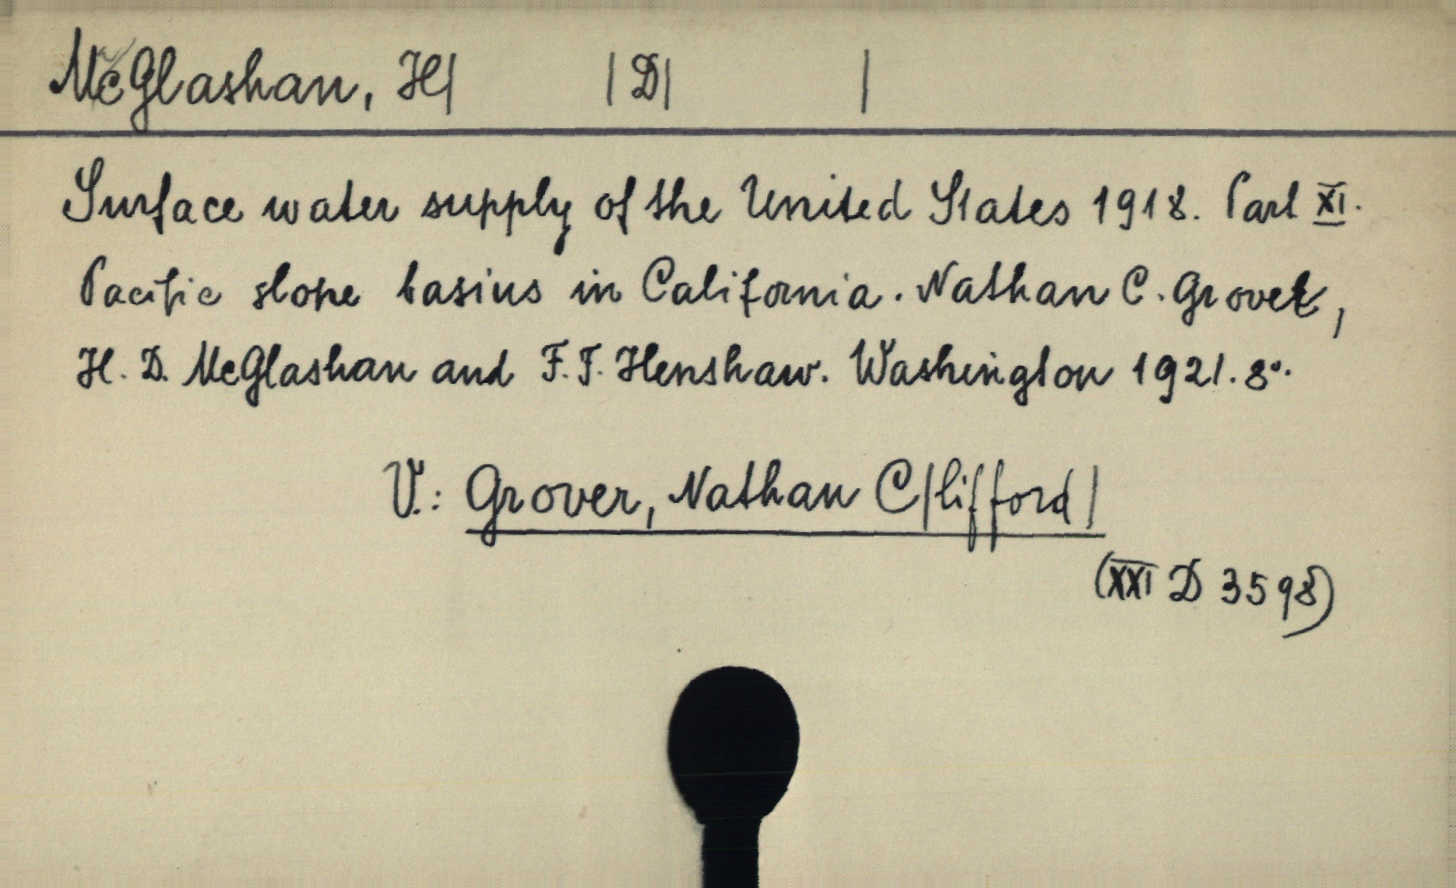 McGlashan, H| |D| |
Surface water supply of the United States 1918. Part XI.
Pacific slope basins in California. Nathan C. Grover,
H. D. McGlashan and F. F. Henshaw. Washington 1921. 8°.
V.: Grover, Nathan C|lifford|
(XXI D 3598)